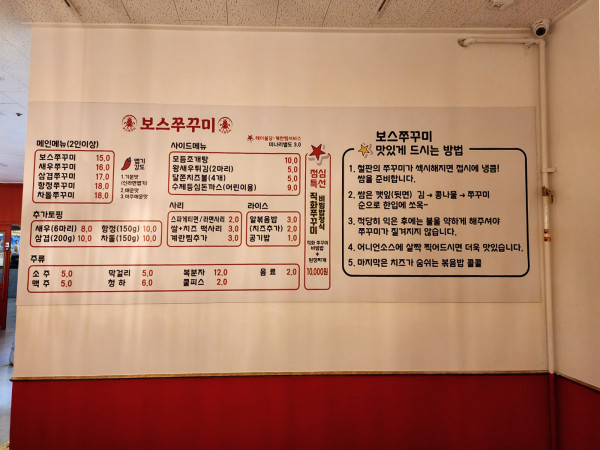 보스쭈꾸미
테이블당·계란찜서비스
미나리별도 3.0
메인메뉴(2인이상)
보스쭈꾸미 15,0
새우쭈꾸미 16,0
삼겹쭈꾸미 17,0
항정쭈꾸미 18,0
차돌쭈꾸미 18,0
맵기
강도
1.기본맛
(신라면맵기)
2.매운맛
3.아주매운맛
사이드메뉴
모듬조개탕 10,0
왕새우튀김(2마리) 5,0
달돈치즈볼(4개) 5,0
수제등심돈까스(어린이용) 9,0
추가토핑
새우(6마리) 8,0 항정(150g) 10,0
삼겹(200g) 10,0 차돌(150g) 10,0
사리
스파게티면/라면사리 2,0
쌀+치즈 떡사리 3,0
계란찜추가 3,0
라이스
알볶음밥 3,0
(치즈추가) 2,0
공기밥 1,0
주류
소 주 5,0 막걸리 5,0 복분자 12,0 음 료 2,0
맥 주 5,0 청 하 6,0 쿨피스 2,0
점심
특선
직화쭈꾸미
비빔밥정식
직화 쭈꾸미
비빔밥
+
된장찌개
10,000원
보스쭈꾸미
맛있게 드시는 방법
1. 철판의 쭈꾸미가 섹시해지면 접시에 냉큼!
쌈을 준비합니다.
2. 쌈은 깻잎(뒷면) 김→콩나물→쭈꾸미
순으로 한입에 쏘옥~
3. 적당히 익은 후에는 불을 약하게 해주셔야
쭈꾸미가 질겨지지 않습니다.
4. 어니언소스에 살짝 찍어드시면 더욱 맛있습니다.
5. 마지막은 치즈가 숨쉬는 볶음밥 콜콜